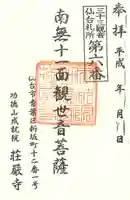 奉拝 平成 年 月 日
三十三観音
仙台札所
第六番
南無十一面観世音菩薩
仙台市青葉区新坂町十二番一号
功徳山成就院 荘厳寺